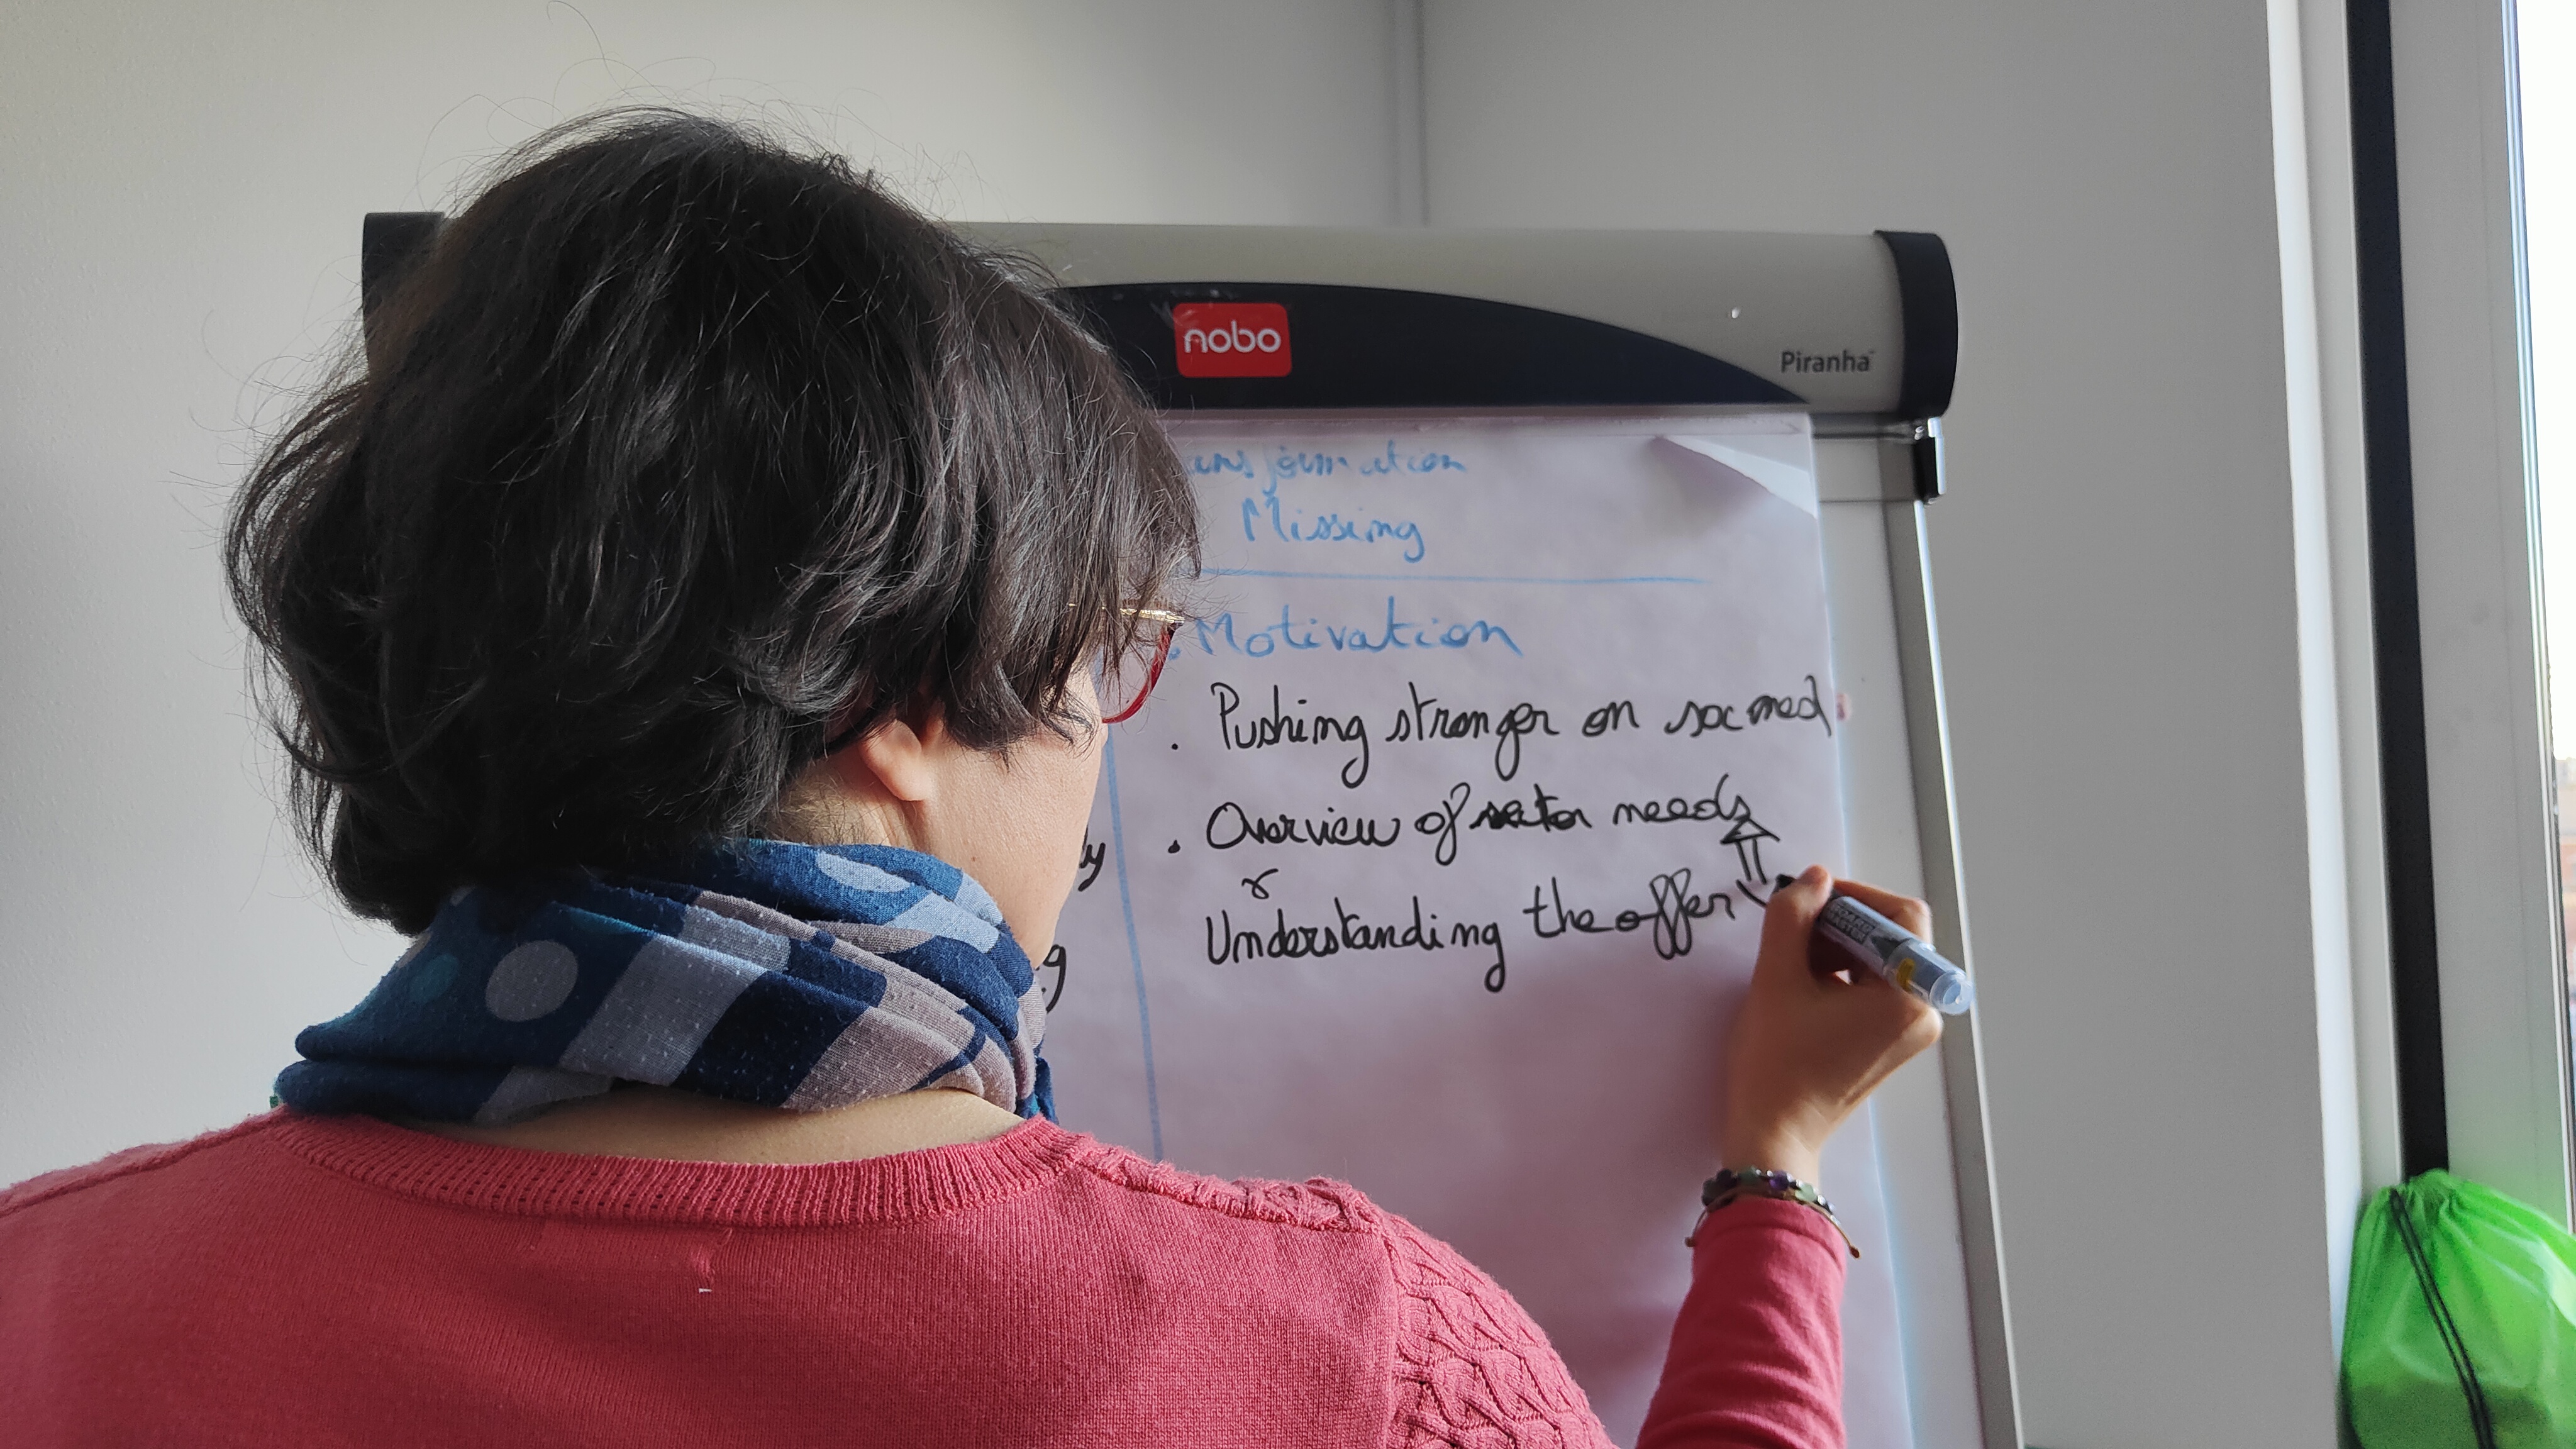 nobo
Piranha
ansformation
Missing
. Motivation
. Pushing stronger on socmed
. Overview of sector needs
&
Understanding the offer
y
g